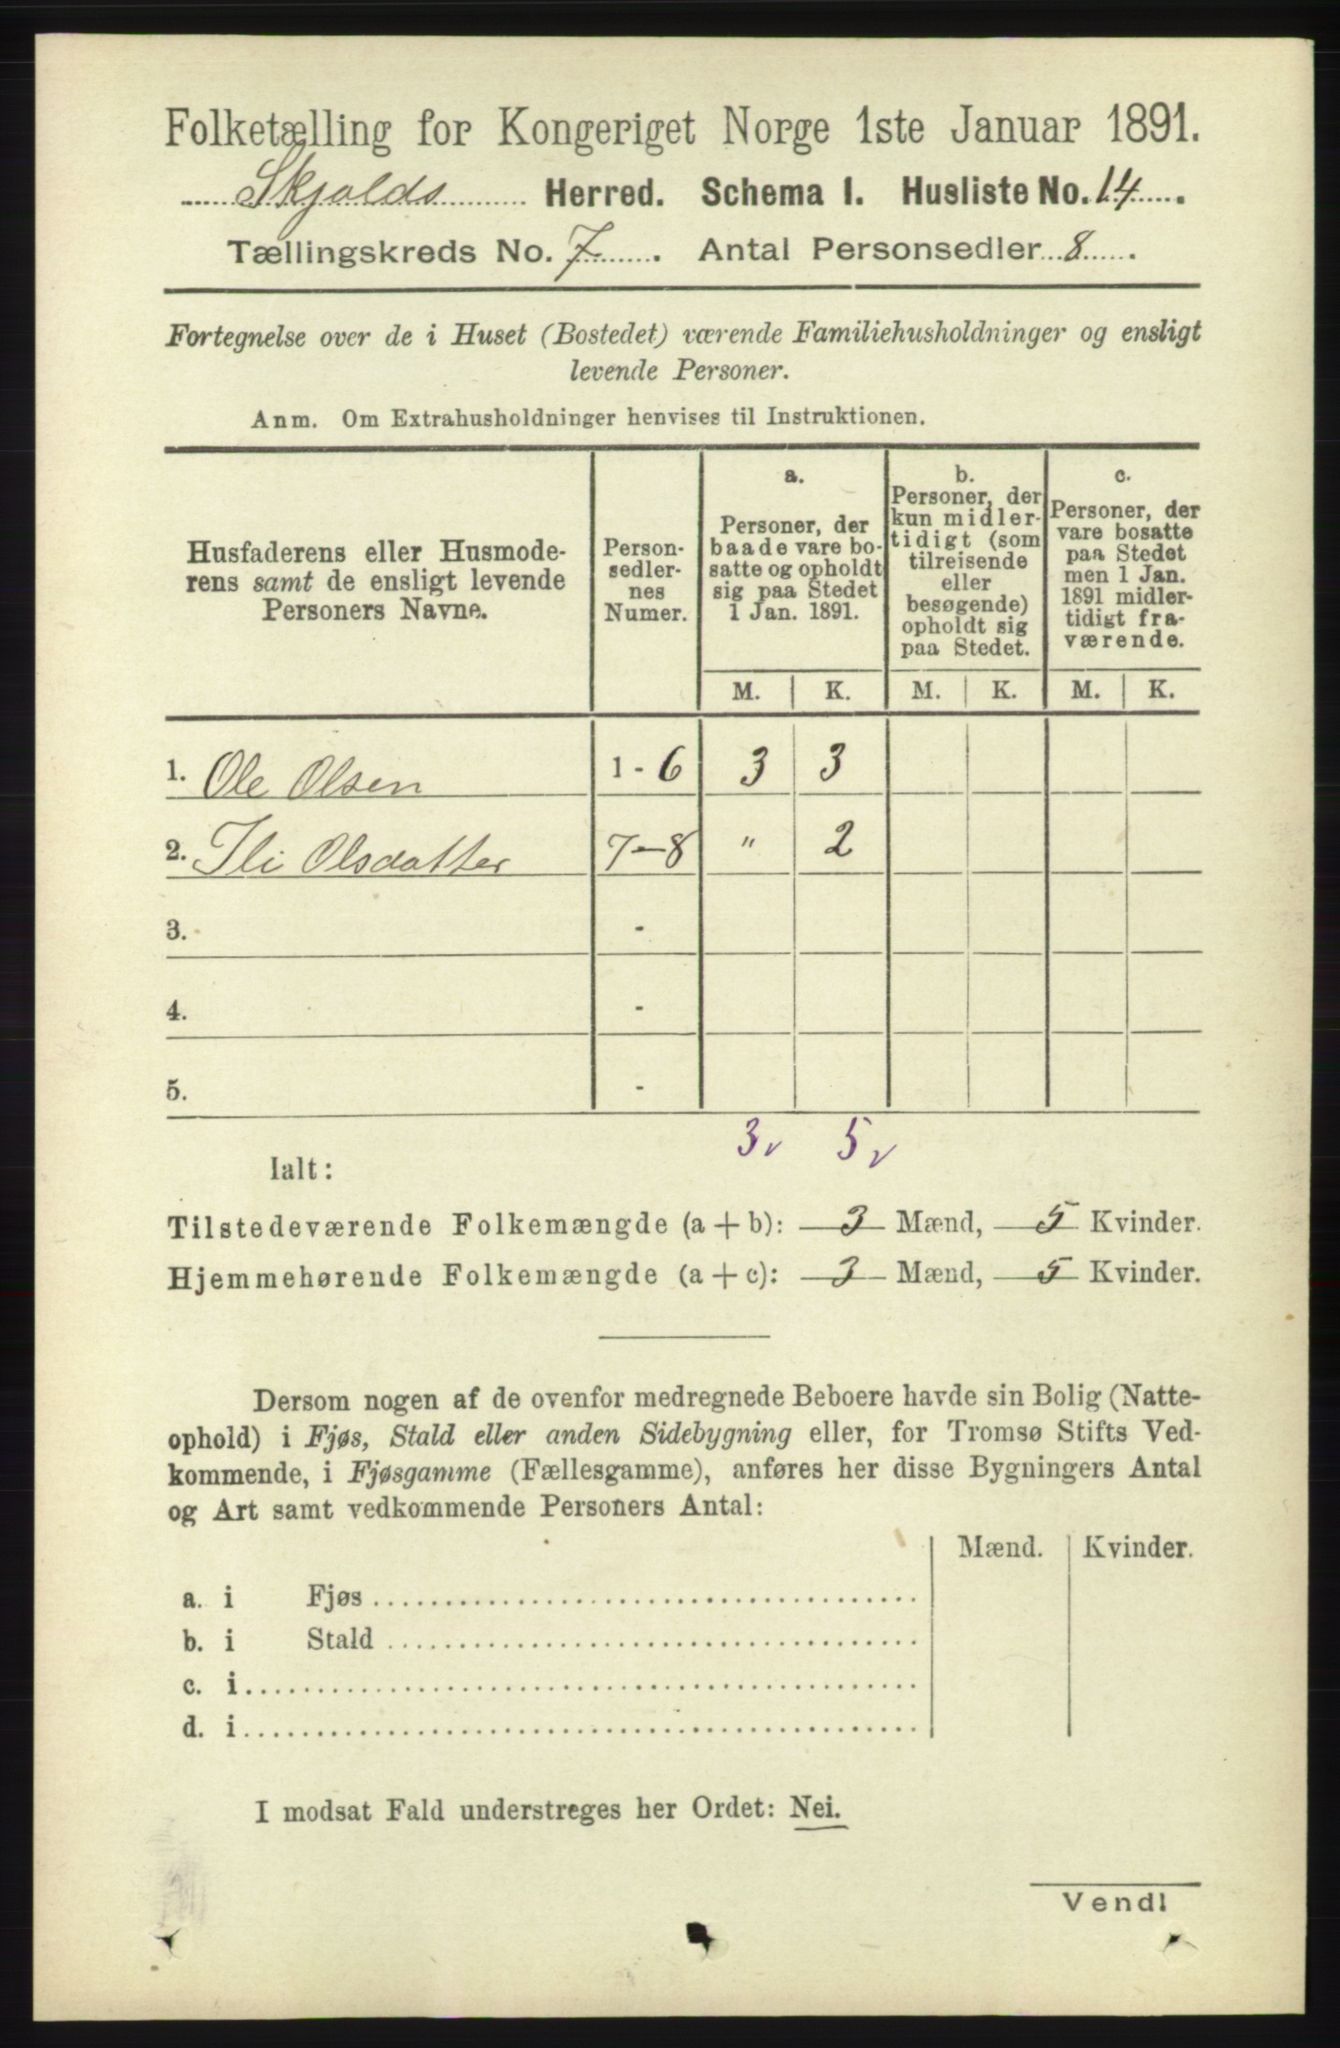 Folketælling for Kongeriget Norge 1ste Januar 1891.
Skjolds Herred. Schema I. Husliste No. 14.
Tællingskreds No. 7. Antal Personsedler 8.
Fortegnelse over de i Huset (Bostedet) værende Familiehusholdninger og ensligt
levende Personer.
Anm. Om Extrahusholdninger henvises til Instruktionen.
Husfaderens eller Husmode-
rens samt de ensligt levende
Personers Navne.
Person-
sedler-
nes
Numer.
a.
Personer, der
baade vare bo-
satte og opholdt
sig paa Stedet
1 Jan. 1891.
b.
Personer, der
kun midler-
tidigt (som
tilreisende
eller
besøgende)
opholdt sig
paa Stedet.
c.
Personer, der
vare bosatte
paa Stedet
men 1 Jan.
1891 midler-
tidigt fra-
værende.
M. K. M. K. M. K.
1. Ole Olsen 1 - 6 3 3
2. Ili Olsdatter 7-8 " 2
3. -
4. -
5. -
3 5
Ialt:
Tilstedeværende Folkemængde (a + b): 3 Mænd, 5 Kvinder.
Hjemmehørende Folkemængde (a + c): 3 Mænd, 5 Kvinder.
Dersom nogen af de ovenfor medregnede Beboere havde sin Bolig (Natte-
ophold) i Fjøs, Stald eller anden Sidebygning eller, for Tromsø Stifts Ved-
kommende, i Fjøsgamme (Fællesgamme), anføres her disse Bygningers Antal
og Art samt vedkommende Personers Antal:
Mænd. Kvinder.
a. i Fjøs
b. i Stald
c. i
d. i
I modsat Fald understreges her Ordet: Nei.
Vendl